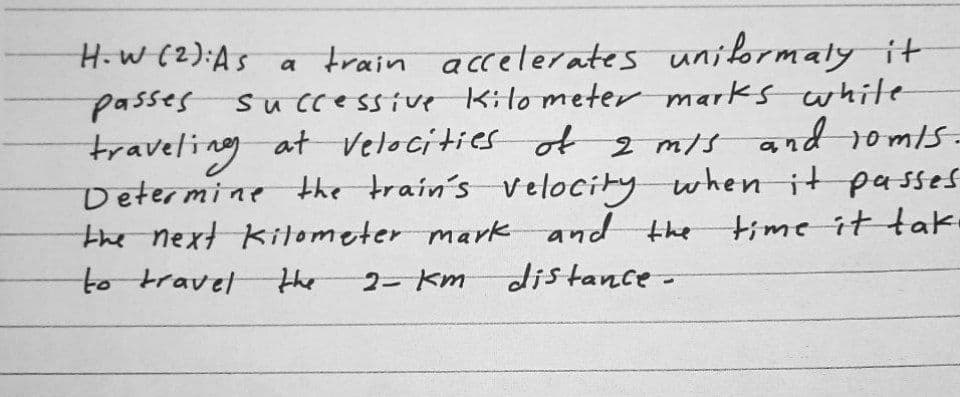 H.W (2):As a train accelerates uniformaly it
passes successive Kilo meter marks while
traveling at velocities of 2 m/s and 10 m/s.
Determine the train's velocity when it passes
the next kilometer mark and the time it tak
to travel the 2- Km distance -